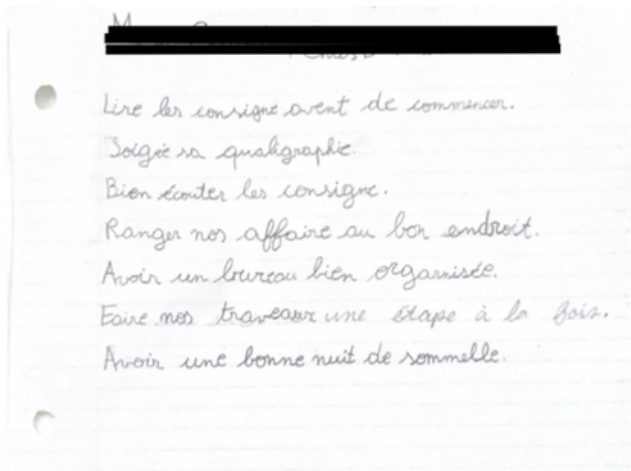 Lire les consigne avent de commencer.
Soigée sa qualigraphie.
Bien écouter les consigne.
Ranger nos affaire au bon endroit.
Avoir un bureau bien organisée.
Faire nos traveaux une étape à la fois.
Avoir une bonne nuit de sommelle.